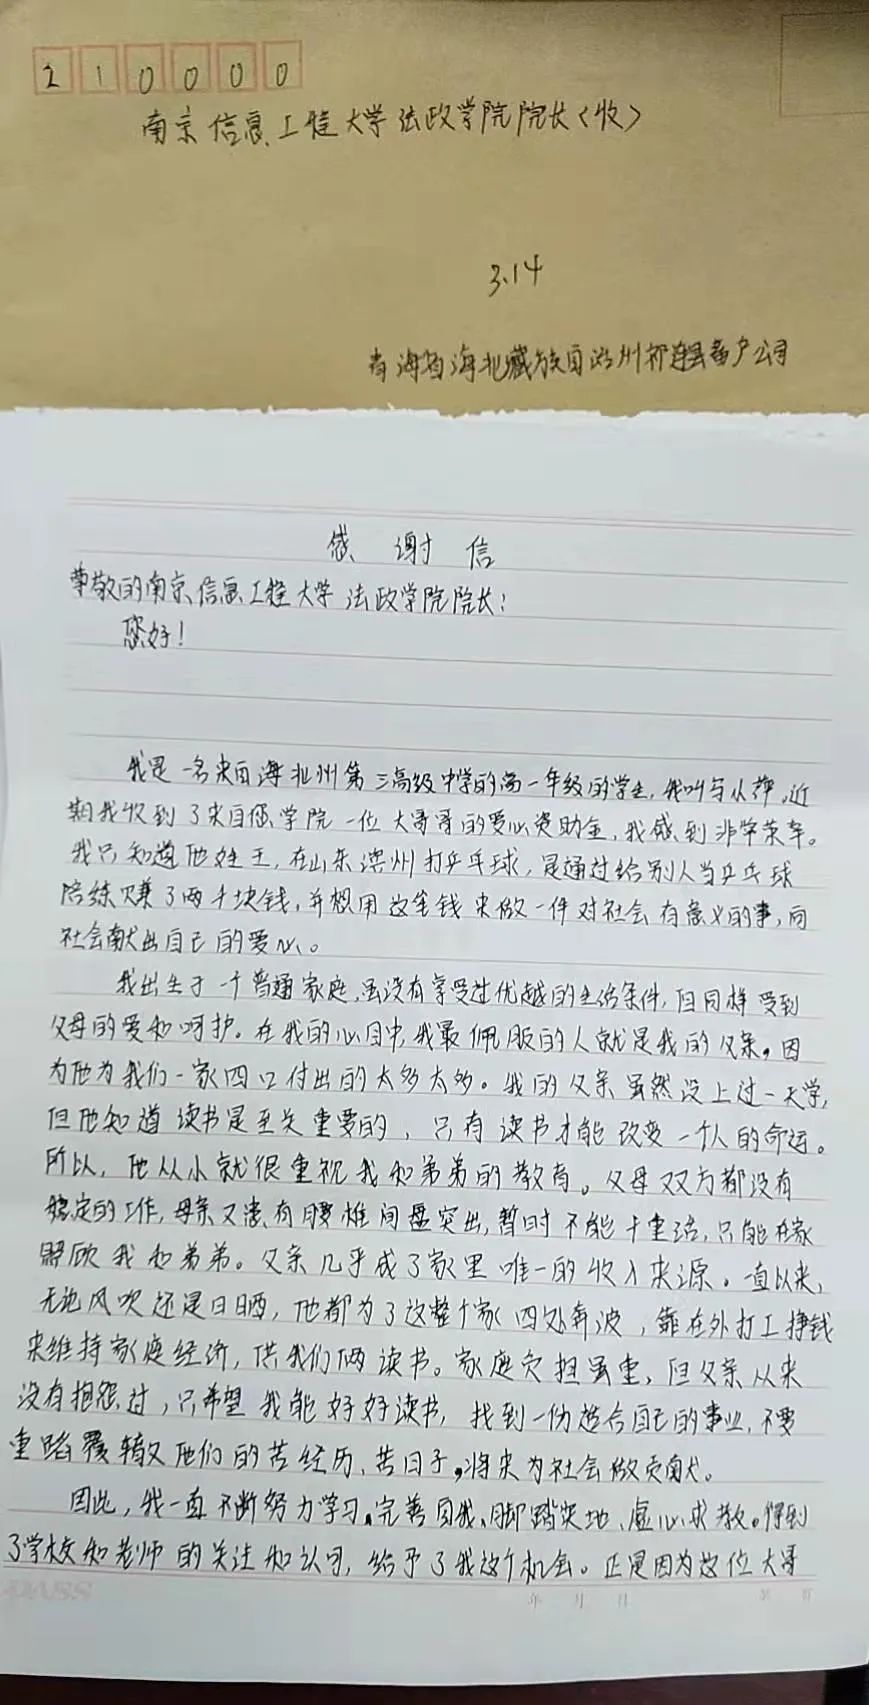 210000
南京信息工程大学法政学院院长(收)
3.14
青海省海北藏族自治州祁连县畜产公司
感谢信
尊敬的南京信息工程大学法政学院院长:
您好!
我是一名来自海北州第三高级中学的高一年级的学生,我叫马从萍,近
期我收到了来自您学院一位大哥哥的爱心资助金,我感到非常荣幸。
我只知道他姓王,在山东滨州打乒乓球,是通过给别人当乒乓球
陪练赚了两千块钱,并想用这笔钱来做一件对社会有意义的事,向
社会献出自己的爱心。
我出生于一个普通家庭,虽没有享受过优越的生活条件,但同样受到
父母的爱和呵护。在我的心目中,我最佩服的人就是我的父亲,因
为他为我们一家四口付出的太多太多。我的父亲虽然没上过一天学,
但他知道读书是至关重要的,只有读书才能改变一个人的命运。
所以,他从小就很重视我和弟弟的教育。父母双方都没有
稳定的工作,母亲又患有腰椎间盘突出,暂时不能干重活,只能在家
照顾我和弟弟。父亲几乎成了家里唯一的收入来源。一直以来,
无论风吹还是日晒,他都为了这整个家四处奔波,靠在外打工挣钱
来维持家庭经济,供我们俩读书。家庭负担虽重,但父亲从来
没有抱怨过,只希望我能好好读书,找到一份适合自己的事业,不要
重蹈覆辙他们的苦经历、苦日子,将来为社会做贡献。
因此,我一直不断努力学习,完善自我,脚踏实地、虚心求教。得到
了学校和老师的关注和认可,给予了我这个机会。正是因为这位大哥
年 月 日